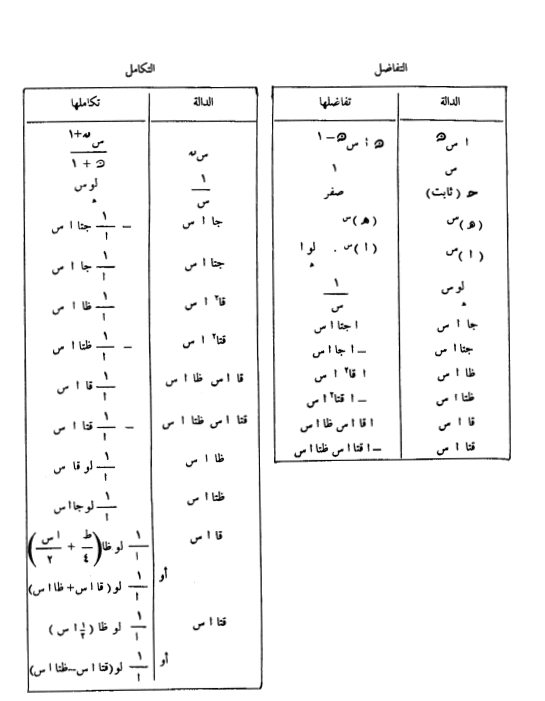 التفاضل
الدالة تفاضلها
ا س^ن ن ا س^(ن−١)
س ١
حـ (ثابت) صفر
(هـ)^س (هـ)^س
(ا)^س (ا)^س . لو_هـ ا
لو_هـ س ١/س
جا ا س ا جتا ا س
جتا ا س − ا جا ا س
ظا ا س ا قا٢ ا س
ظتا ا س − ا قتا٢ ا س
قا ا س ا قا ا س ظا ا س
قتا ا س − ا قتا ا س ظتا ا س
التكامل
الدالة تكاملها
س^ن س^(ن+١)/(ن + ١)
١/س لو_هـ س
جا ا س − ١/ا جتا ا س
جتا ا س ١/ا جا ا س
قا٢ ا س ١/ا ظا ا س
قتا٢ ا س − ١/ا ظتا ا س
قا ا س ظا ا س ١/ا قا ا س
قتا ا س ظتا ا س − ١/ا قتا ا س
ظا ا س ١/ا لو قا س
ظتا ا س ١/ا لو جا ا س
قا ا س ١/ا لو ظا (ط/٤ + ا س/٢)
أو ١/ا لو (قا ا س + ظا ا س)
قتا ا س ١/ا لو ظا (١/٢ ا س)
أو ١/ا لو (قتا ا س − ظتا ا س)